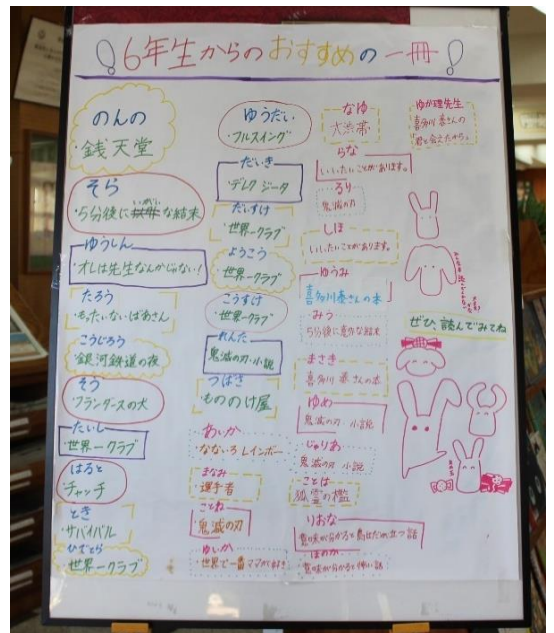 6年生からのおすすめの一冊
のんの
・銭天堂
そら
・5分後に な結末
いがい
ゆうしん
・オレは先生なんかじゃない!
たろう
・もったいないばあさん
こうじろう
・銀河鉄道の夜
そう
・フランダースの犬
たいし
・世界一クラブ
はると
チャッチ
とき
・サバイバル
ひでとら
・世界一クラブ
ゆうだい
・フルスイング
だいき
・デレク ジータ
だいすけ
・世界一クラブ
ようこう
・世界一クラブ
こうすけ
・世界一クラブ
れんた
鬼滅の刃・小説
つばさ
もののけ屋
あいか
・なないろレインボー
まなみ
・選手者
ことね
・鬼滅の刃
ゆいか
・世界で一番ママが好き
なゆ
大渋滞
らな
・いいたいことがあります。
るり
・鬼滅の刃
しほ
・いいたいことがあります。
ゆうみ
喜多川泰さんの本
みう
・5分後に意外な結末
まさき
・喜多川 泰さんの本
ゆめ
・鬼滅の刃 小説
じゅりあ
鬼滅の刃 小説
ことは
狐霊の檻
りおな
ほのか
・意味が分かると怖い話
ゆか理先生
喜多川 泰さんの
「君と会えたから」
ぜひ、読んでみてね